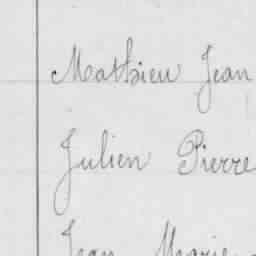 Mathieu Jean
Julien Pierre
Jean Marie